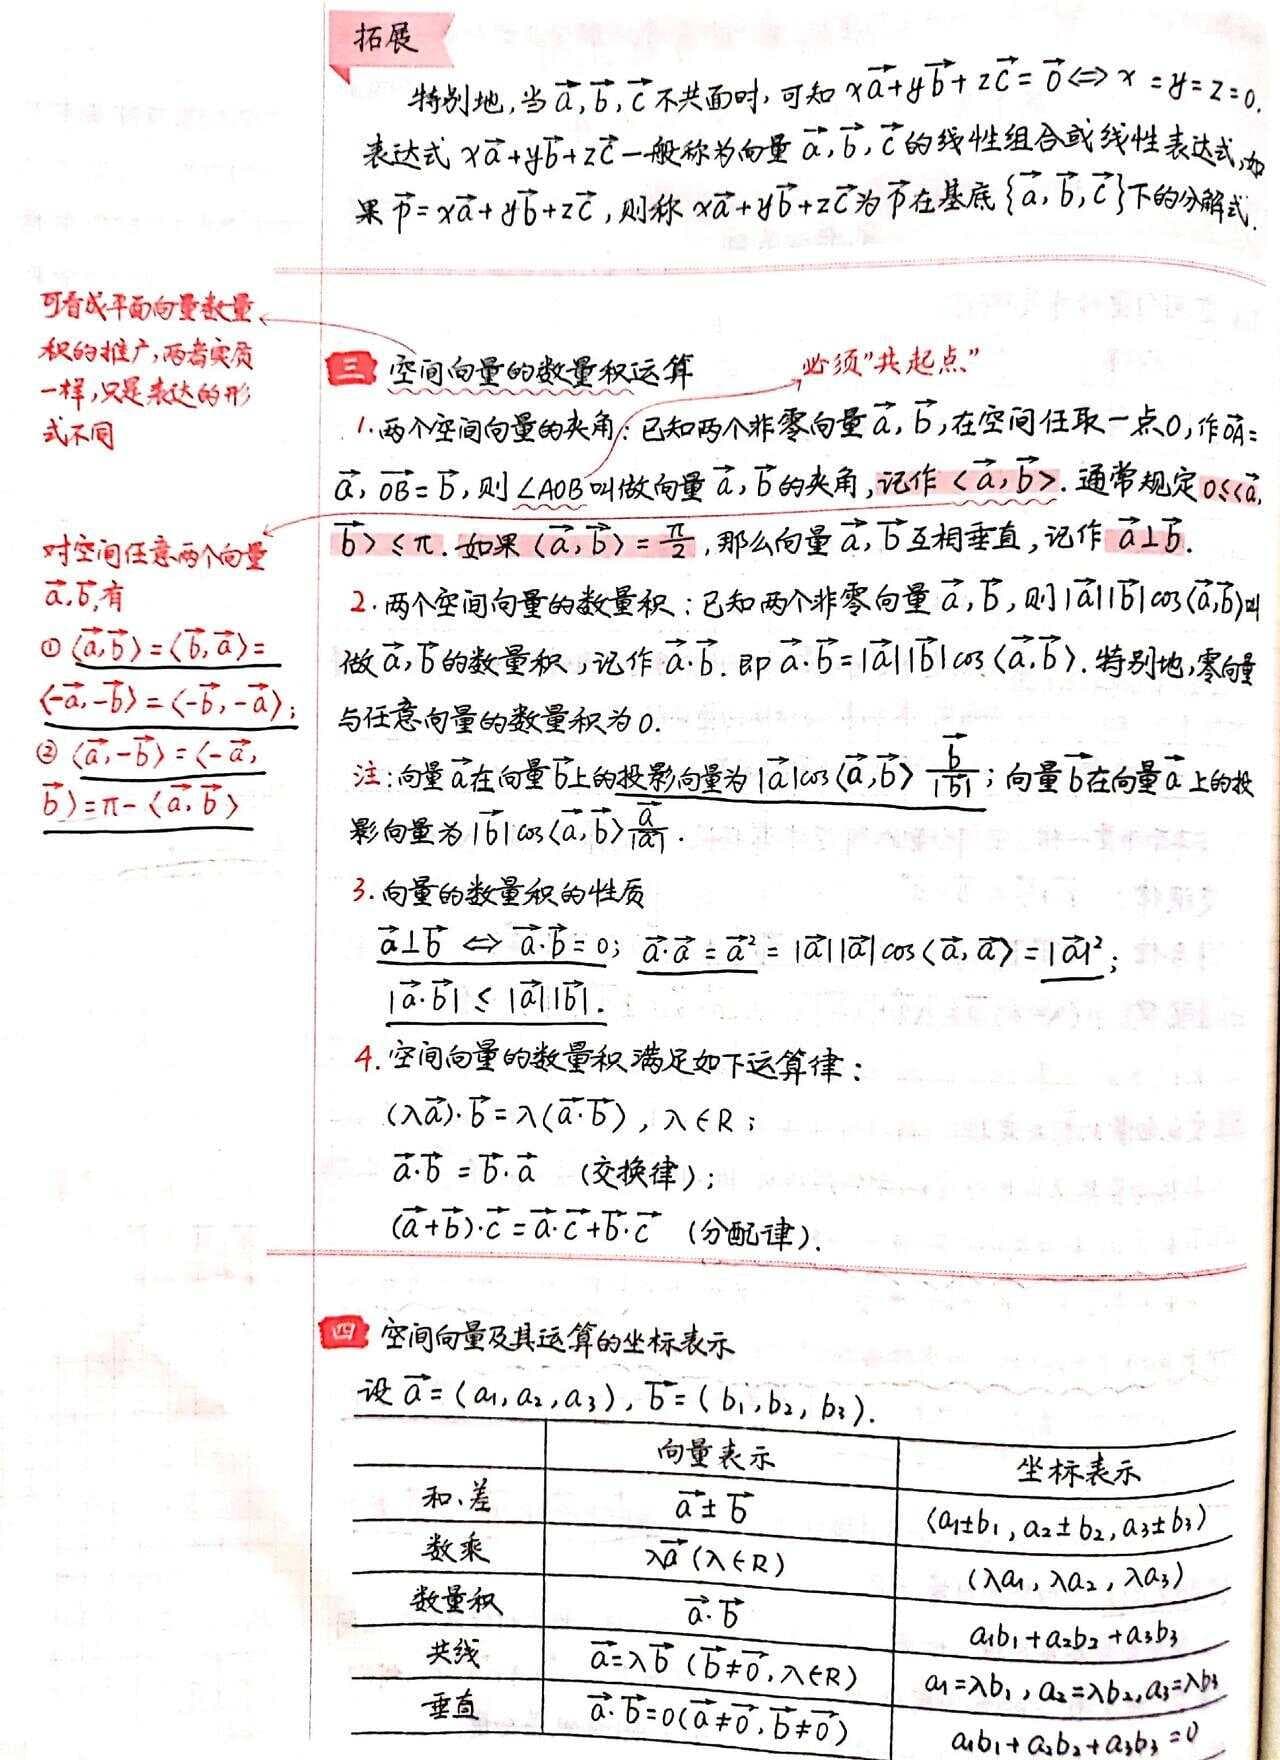 拓展
特别地,当a⃗,b⃗,c⃗不共面时,可知xa⃗+yb⃗+zc⃗=0⃗⇔x=y=z=0.
表达式xa⃗+yb⃗+zc⃗一般称为向量a⃗,b⃗,c⃗的线性组合或线性表达式,如
果p⃗=xa⃗+yb⃗+zc⃗,则称xa⃗+yb⃗+zc⃗为p⃗在基底{a⃗,b⃗,c⃗}下的分解式.
可看成平面向量数量
积的推广,两者实质
一样,只是表达的形
式不同
三 空间向量的数量积运算
必须"共起点"
1.两个空间向量的夹角:已知两个非零向量a⃗,b⃗,在空间任取一点O,作OA⃗=
a⃗,OB⃗=b⃗,则∠AOB叫做向量a⃗,b⃗的夹角,记作<a⃗,b⃗>.通常规定0≤<a⃗,
b⃗>≤π.如果<a⃗,b⃗>=π/2,那么向量a⃗,b⃗互相垂直,记作a⃗⊥b⃗.
对空间任意两个向量
a⃗,b⃗,有
①<a⃗,b⃗>=<b⃗,a⃗>=
<-a⃗,-b⃗>=<-b⃗,-a⃗>;
②<a⃗,-b⃗>=<-a⃗,
b⃗>=π-<a⃗,b⃗>
2.两个空间向量的数量积:已知两个非零向量a⃗,b⃗,则|a⃗||b⃗|cos<a⃗,b⃗>叫
做a⃗,b⃗的数量积,记作a⃗·b⃗.即a⃗·b⃗=|a⃗||b⃗|cos<a⃗,b⃗>.特别地,零向量
与任意向量的数量积为0.
注:向量a⃗在向量b⃗上的投影向量为|a⃗|cos<a⃗,b⃗> b⃗/|b⃗|;向量b⃗在向量a⃗上的投
影向量为|b⃗|cos<a⃗,b⃗> a⃗/|a⃗|.
3.向量的数量积的性质
a⃗⊥b⃗⇔a⃗·b⃗=0; a⃗·a⃗=a⃗²=|a⃗||a⃗|cos<a⃗,a⃗>=|a⃗|²;
|a⃗·b⃗|≤|a⃗||b⃗|.
4.空间向量的数量积满足如下运算律:
(λa⃗)·b⃗=λ(a⃗·b⃗),λ∈R;
a⃗·b⃗=b⃗·a⃗ (交换律);
(a⃗+b⃗)·c⃗=a⃗·c⃗+b⃗·c⃗ (分配律).
四 空间向量及其运算的坐标表示
设a⃗=(a₁,a₂,a₃),b⃗=(b₁,b₂,b₃).
向量表示 坐标表示
和、差 a⃗±b⃗ (a₁±b₁,a₂±b₂,a₃±b₃)
数乘 λa⃗(λ∈R) (λa₁,λa₂,λa₃)
数量积 a⃗·b⃗ a₁b₁+a₂b₂+a₃b₃
共线 a⃗=λb⃗(b⃗≠0⃗,λ∈R) a₁=λb₁,a₂=λb₂,a₃=λb₃
垂直 a⃗·b⃗=0(a⃗≠0⃗,b⃗≠0⃗) a₁b₁+a₂b₂+a₃b₃=0